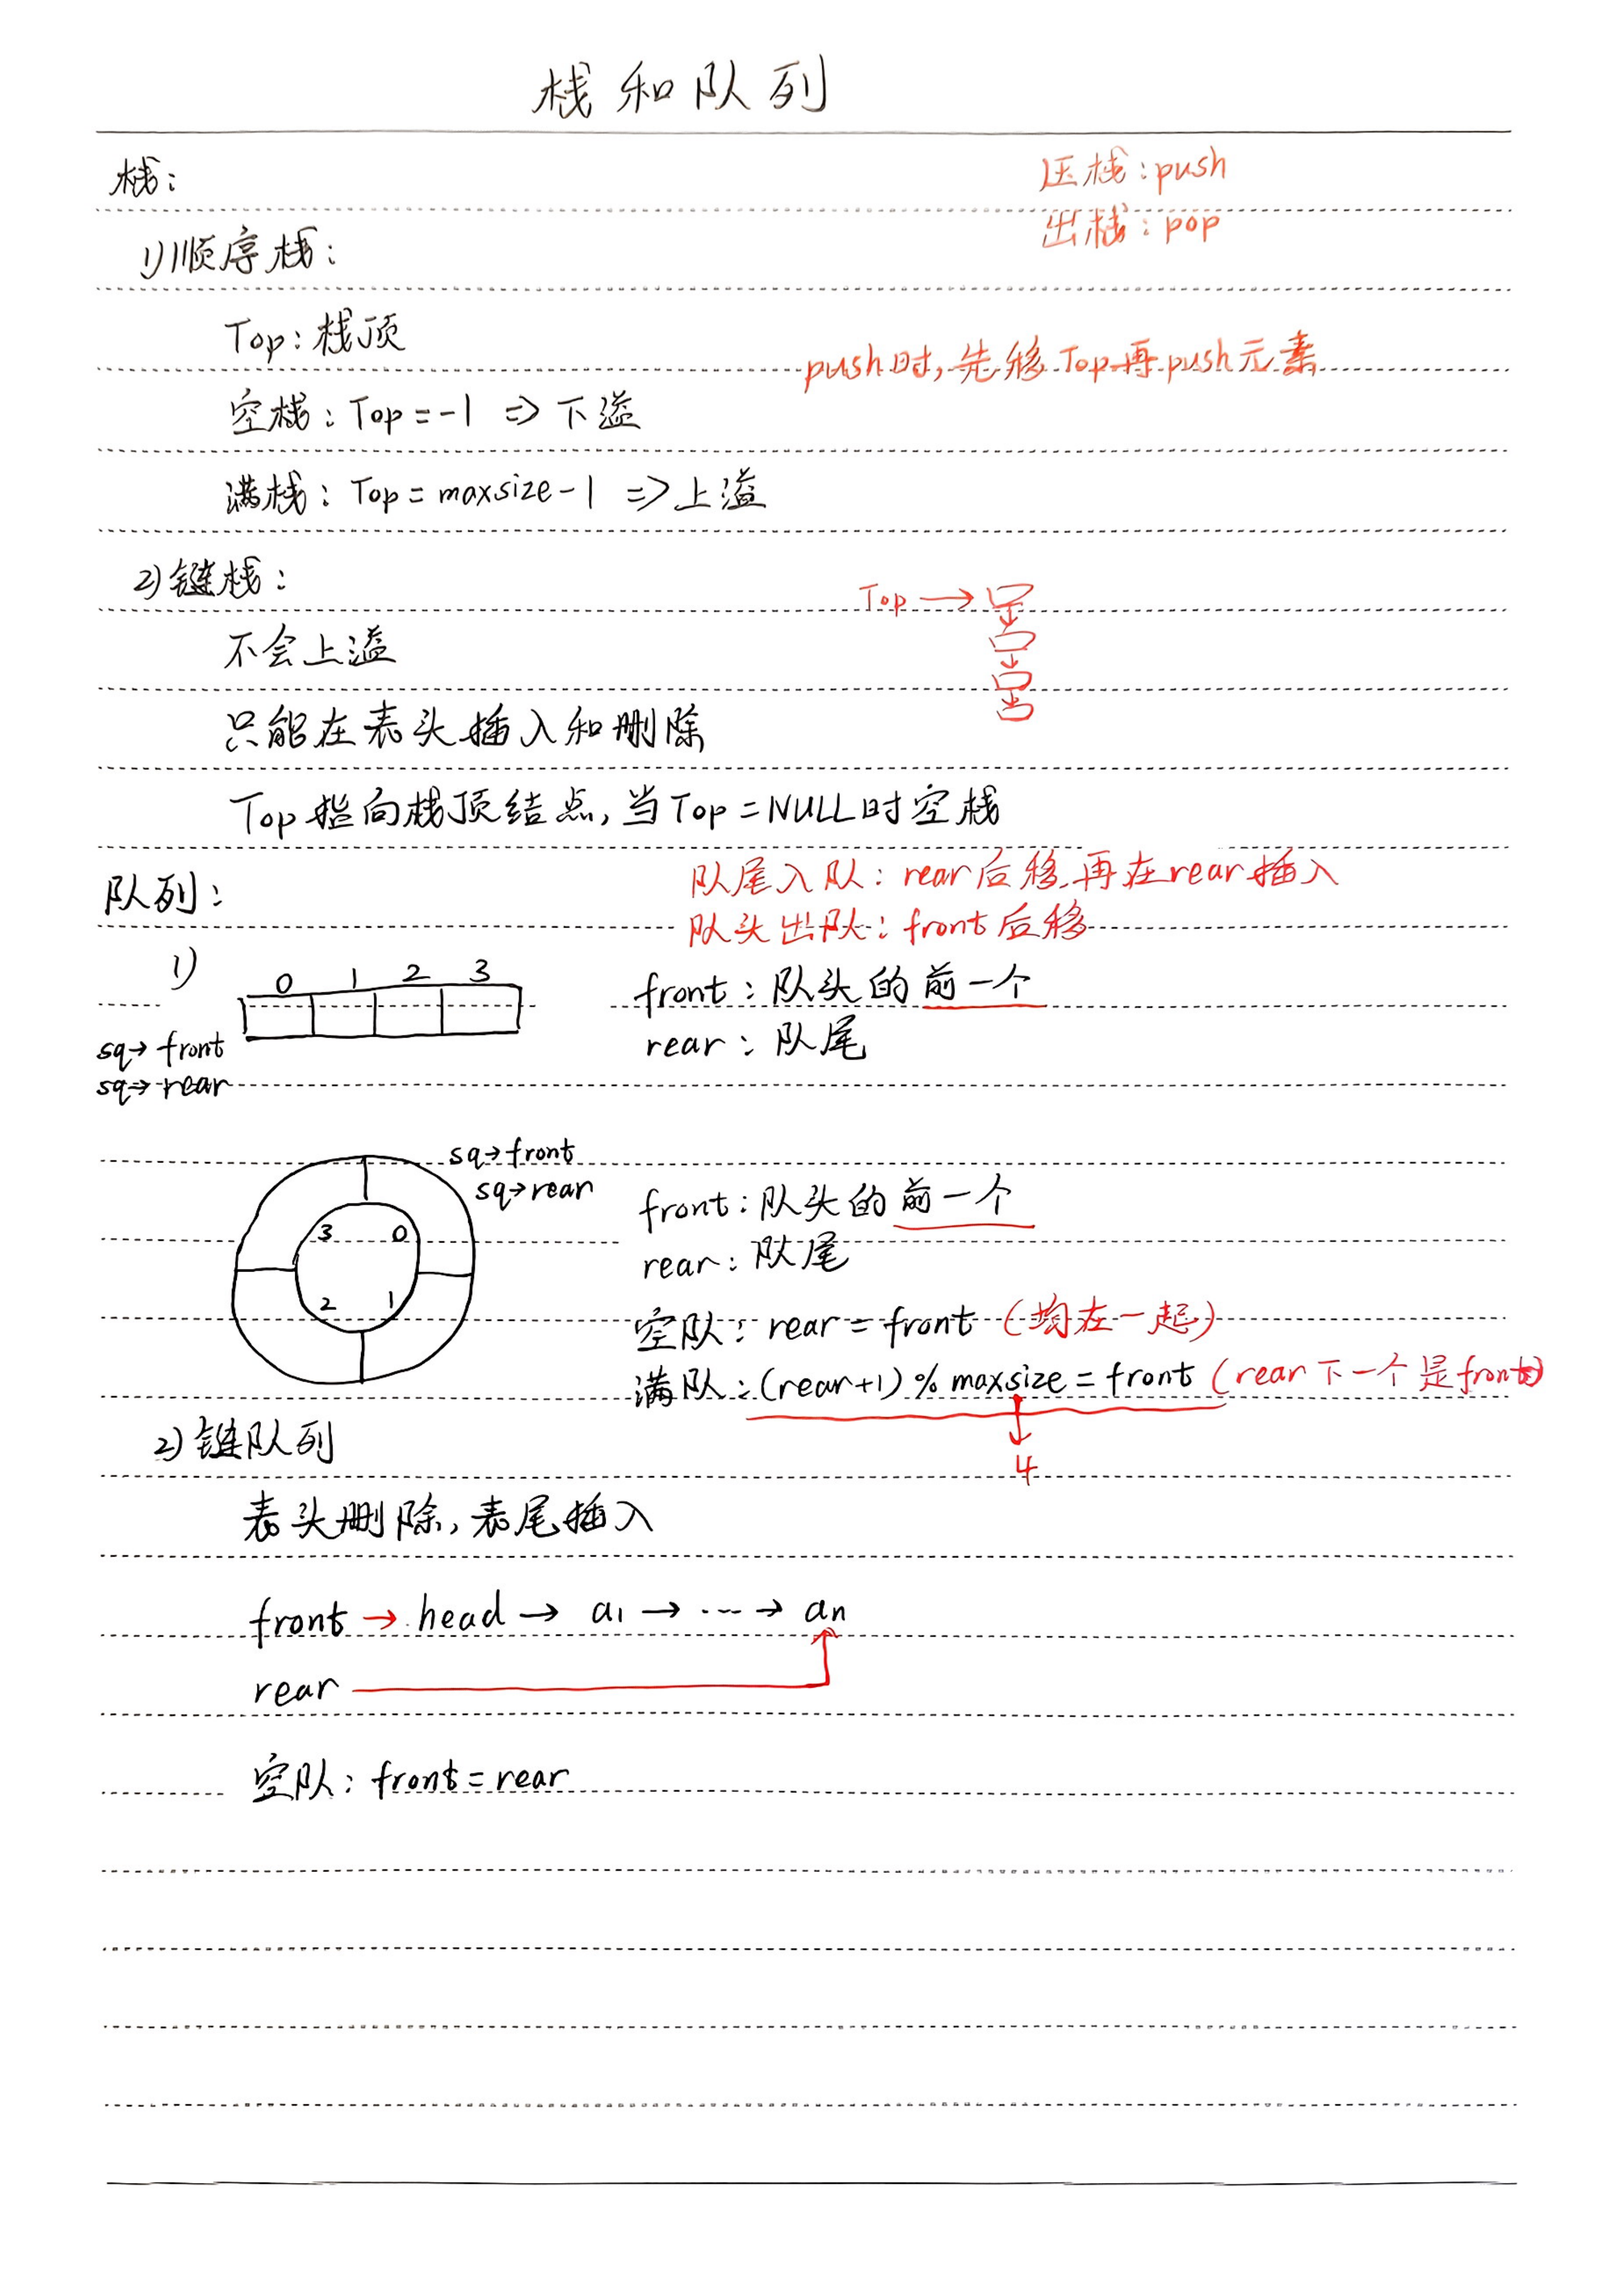 栈和队列
栈:
压栈:push
出栈:pop
1)顺序栈:
Top:栈顶
push时,先移Top再push元素
空栈:Top=-1 => 下溢
满栈:Top=maxsize-1 => 上溢
2)链栈:
Top →
不会上溢
只能在表头插入和删除
Top指向栈顶结点,当Top=NULL时空栈
队列:
队尾入队:rear后移,再在rear插入
队头出队:front后移
1)
0 1 2 3
front:队头的前一个
rear:队尾
sq→front
sq→rear
sq→front
sq→rear
3 0
2 1
front:队头的前一个
rear:队尾
空队:rear=front(均在一起)
满队:(rear+1)%maxsize=front(rear下一个是front)
4
2)链队列
表头删除,表尾插入
front → head → a1 → ... → an
rear
空队:front=rear